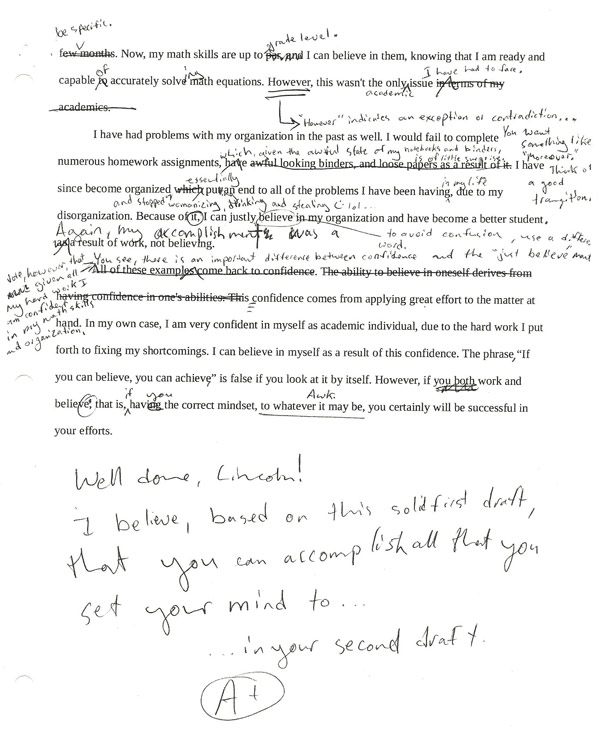 be specific.
grade level.
few months. Now, my math skills are up to par, and I can believe in them, knowing that I am ready and
of ing I have had to face.
capable to accurately solve math equations. However, this wasn't the only issue in terms of my
academic
academics.
"However" indicates an exception or contradiction...
I have had problems with my organization in the past as well. I would fail to complete
You want something like "Moreover."
which, given the awful state of my notebooks and binders, is of little surprise.
numerous homework assignments, have awful looking binders, and loose papers as a result of it. I have
Think of a good transition.
essentially in my life
since become organized which put an end to all of the problems I have been having, due to my
and stopped womanizing, thinking and stealing
disorganization. Because of it, I can justly believe in my organization and have become a better student,
Again, my accomplishments was a
to avoid confusion, use a different word.
as a result of work, not believing.
You see, there is an important difference between confidence and the "just believe"
Note, however, that given all my hard work I am confident in my math skills and organization.
All of these examples come back to confidence. The ability to believe in oneself derives from
having confidence in one's abilities. This confidence comes from applying great effort to the matter at
hand. In my own case, I am very confident in myself as academic individual, due to the hard work I put
forth to fixing my shortcomings. I can believe in myself as a result of this confidence. The phrase, "If
you can believe, you can achieve" is false if you look at it by itself. However, if you both work and
if you Awk.
believe, that is, having the correct mindset, to whatever it may be, you certainly will be successful in
your efforts.
Well done, Lincoln!
I believe, based on this solid first draft,
that you can accomplish all that you
set your mind to...
...in your second draft.
A+